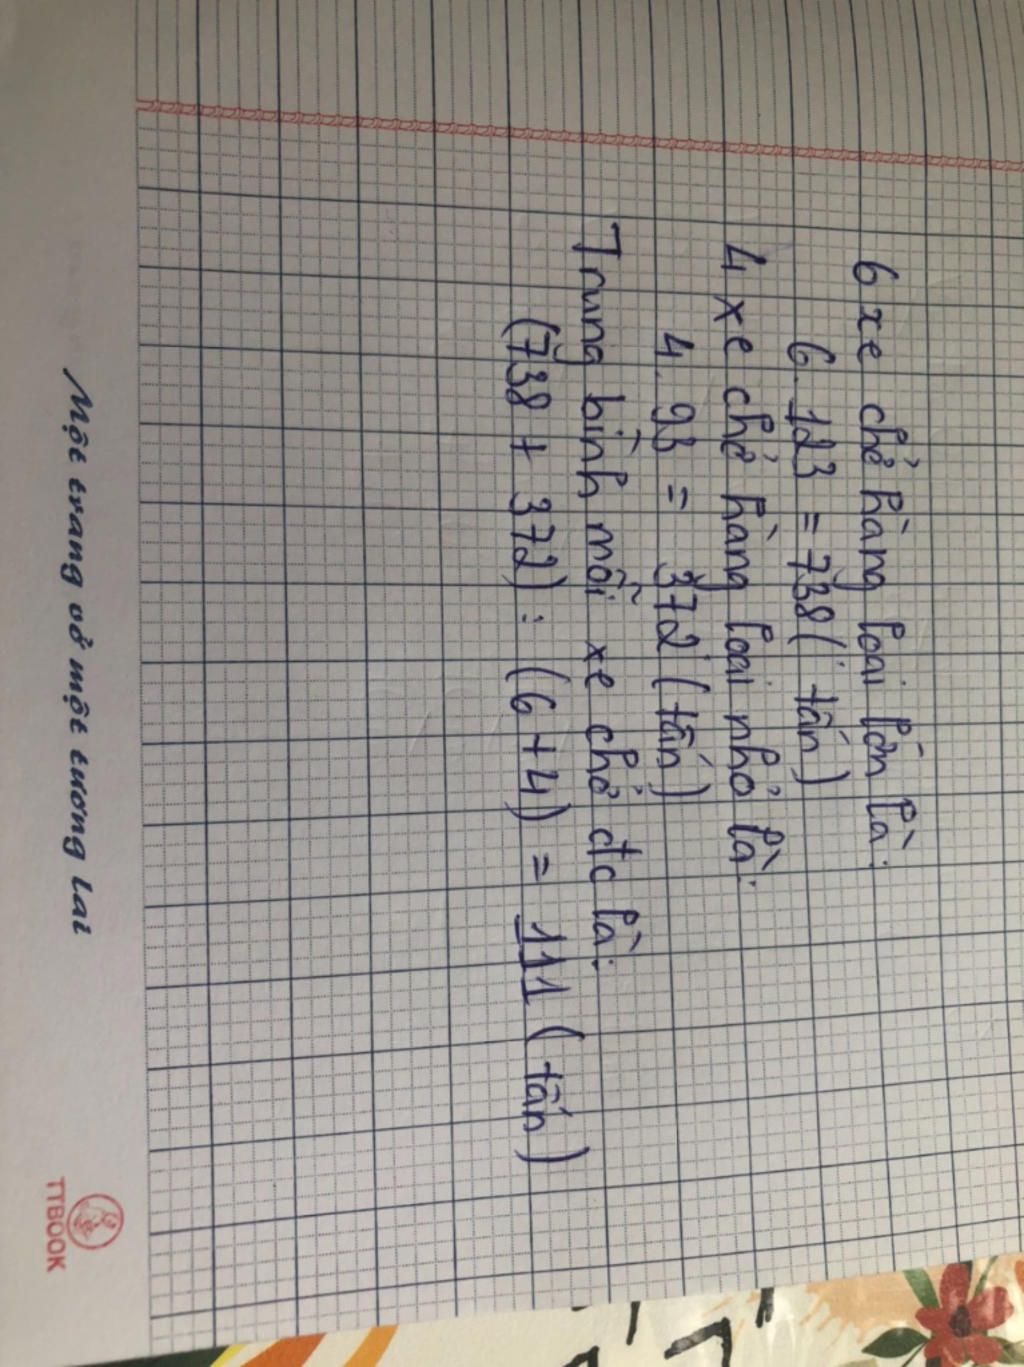 6 xe chở hàng loại lớn là:
6.123 = 738 (tấn)
4 xe chở hàng loại nhỏ là:
4.93 = 372 (tấn)
Trung bình mỗi xe chở đc là:
(738 + 372) : (6 + 4) = 111 (tấn)
Một trang vở một tương lai
TTBOOK